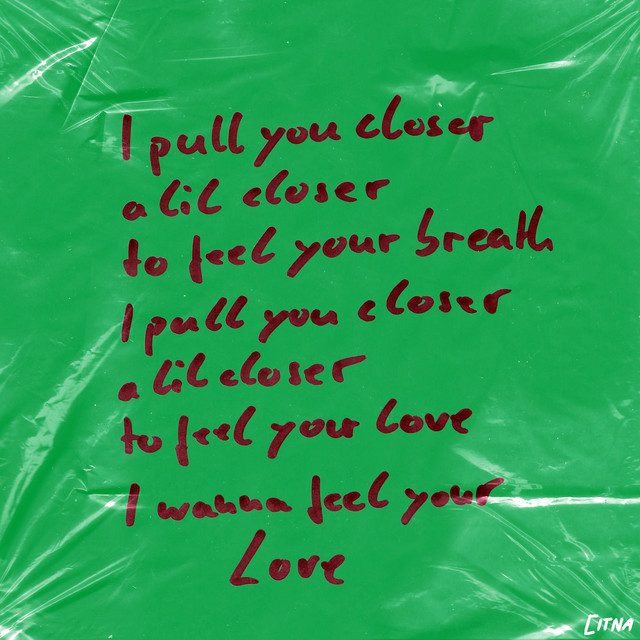 I pull you closer
a lil closer
to feel your breath
I pull you closer
a lil closer
to feel your love
I wanna feel your
Love
CITNA